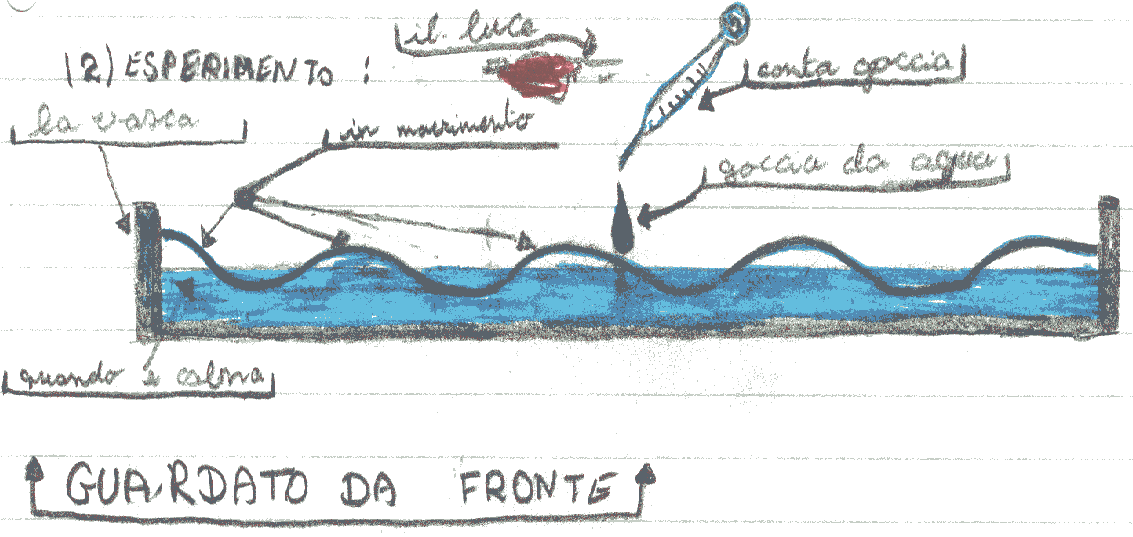 il luce
(2) ESPERIMENTO :
conta goccia
la vasca
in movimento
goccia da aqua
quando è calma
GUARDATO DA FRONTE